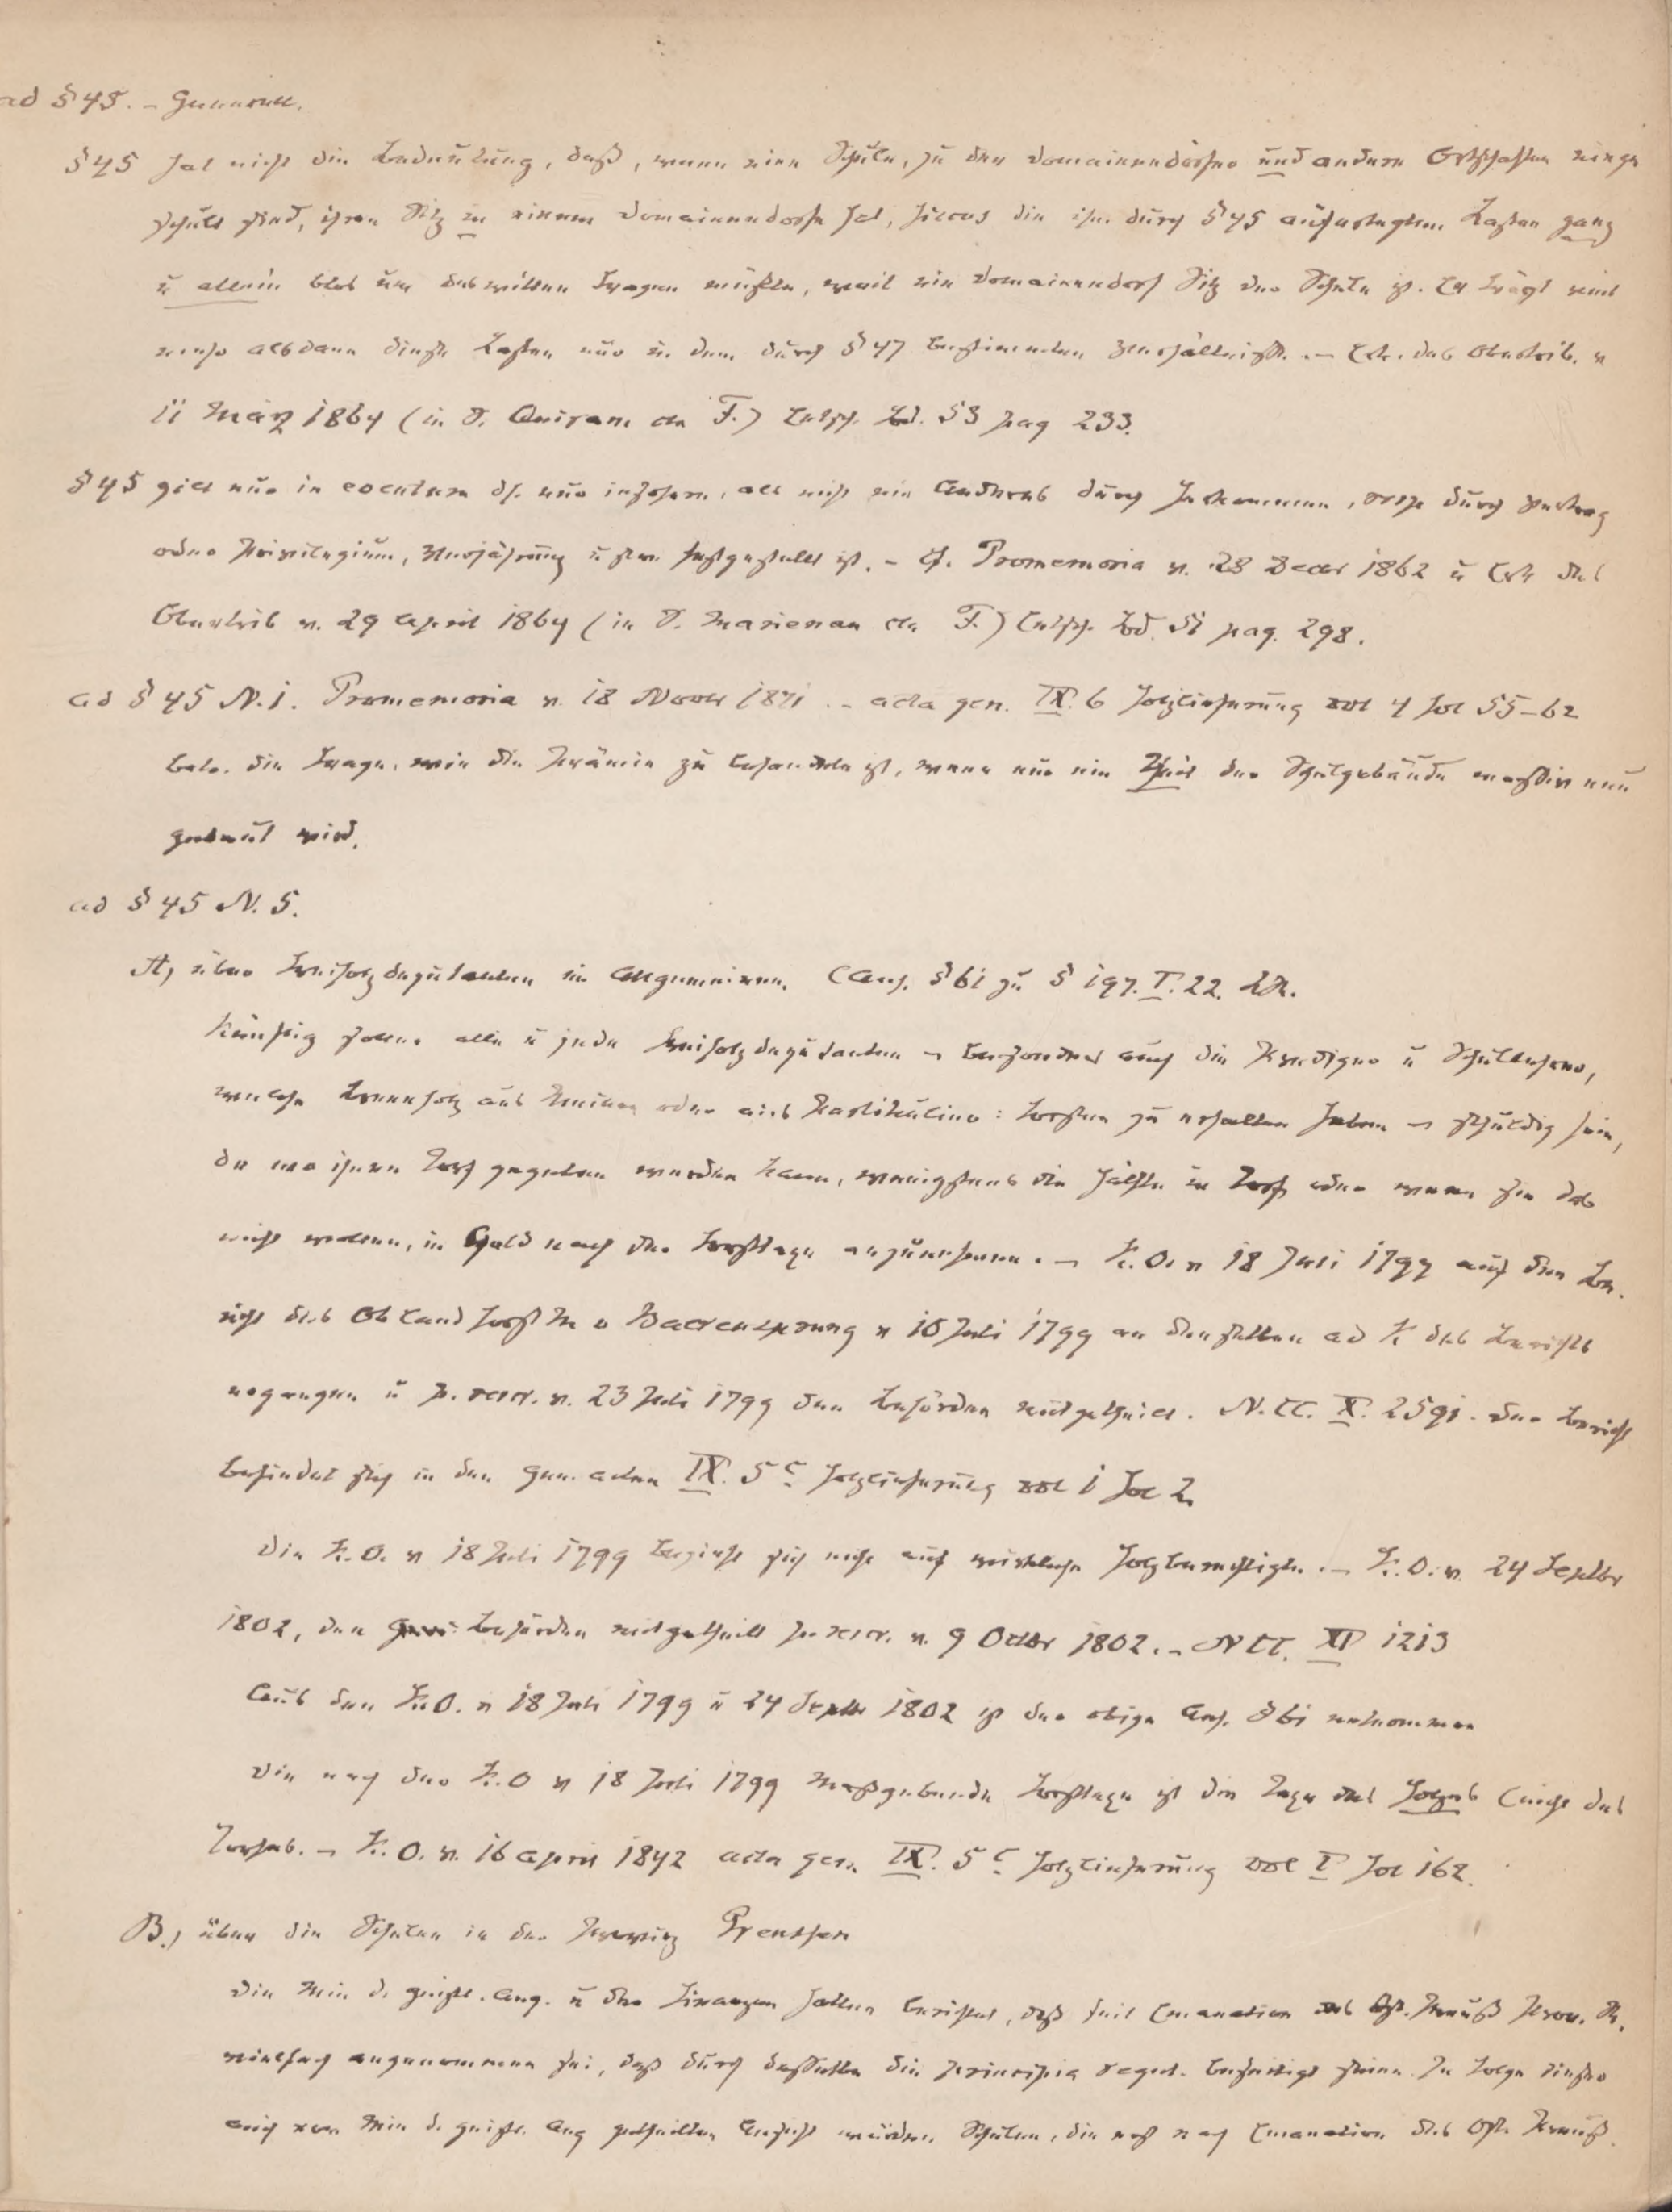 ad § 45. – Generell.
§ 45 hat nicht die Bedeutung, daß, wenn eine Schule, zu der Domainendörfer und andere Ortschaften einge
schult sind, ihren Sitz in einem Domainendorfe hat, Fiscus die ihm durch § 45 auferlegten Lasten ganz
u allein blos um deswillen tragen müßte, weil ein Domainendorf Sitz der Schule ist. Er trägt viel
mehr alsdann diese Lasten nur in dem durch § 47 bestimmten Verhältniß. – Erk. des Obertrib. v
11 März 1864 (in S. Quiram cta F.) Entsch. Bd. 53 pag 233.
§ 45 gilt nur in eventum dh. nur insofern, als nicht ein Anderes durch Herkommen, resp durch Vertrag
oder Privilegium, Verjährung u s.w. festgestellt ist. – Cf. Promemoria v. 28 Decbr 1862 u Erk des
Obertrib v. 29 April 1864 (in S. Marienau cta F.) Entsch. Bd. 51 pag. 298.
ad § 45 N. 1. Promemoria v. 18 Novbr 1871. – acta gen. IX. 6 Holzlieferung vol 4 fol 55–62
betr. die Frage, wie die Prämie zu behandeln ist, wenn nur ein Theil der Schulgebäude massiv neu
gebaut wird.
ad § 45 N. 5.
A, über Freiholzdeputanten im Allgemeinen. (Anh. § 61 zu § 197. I. 22. LR.
Künftig sollen alle u jede Freiholzdeputanten – besonders auch die Prediger u Schullehrer,
welche Brennholz aus Unseren oder aus Partikulier: Forsten zu erhalten haben – schuldig sein,
da wo ihnen Torf gegeben werden kann, wenigstens die Hälfte in Torf oder wenn sie das
nicht wollen, in Geld nach der Forsttaxe anzunehmen. – K. O. v 18 Juli 1799 auf den Be.
richt des Ob Land Forst M v Baerensprung v 10 Juli 1799 an denselben ad K des Berichts
ergangen u p. rescr. v. 23 Juli 1799 den Behörden mitgetheilt. N. CC. X. 2591. Der Bericht
befindet sich in den Gen. acten IX. 5 c Holzlieferung vol 1 fol 2.
Die K. O. v 18 Juli 1799 bezieht sich nicht auf wirkliche Holzberechtigte. – K. O. v. 24 Septbr
1802, den Behörden mitgetheilt p. rescr. v. 9 Octbr 1802. – N CC. XI 1213
Aus den K. O. v 18 Juli 1799 u 24 Septbr 1802 ist der obige Anh. § 61 entnommen
Die nach der K. O v 18 Juli 1799 maßgebende Forsttaxe ist die Taxe des Holzes (nicht des
Torfes. – K. O. v. 16 April 1842 acta gen. IX. 5 c Holzlieferung vol I fol 162.
B., über die Schulen in der Provinz Preussen
Die Min d. geistl. Ang. u der Finanzen hatten berichtet, daß seit Emanation des Ost. Preuß Prov. R.
vielfach angenommen sei, daß durch dasselbe die principia regul. beseitigt seien. In Folge dieser
auch vom Min d. geistl. Ang getheilten Ansicht würden Schulen, die erst nach Emanation des Ost. Preuß.